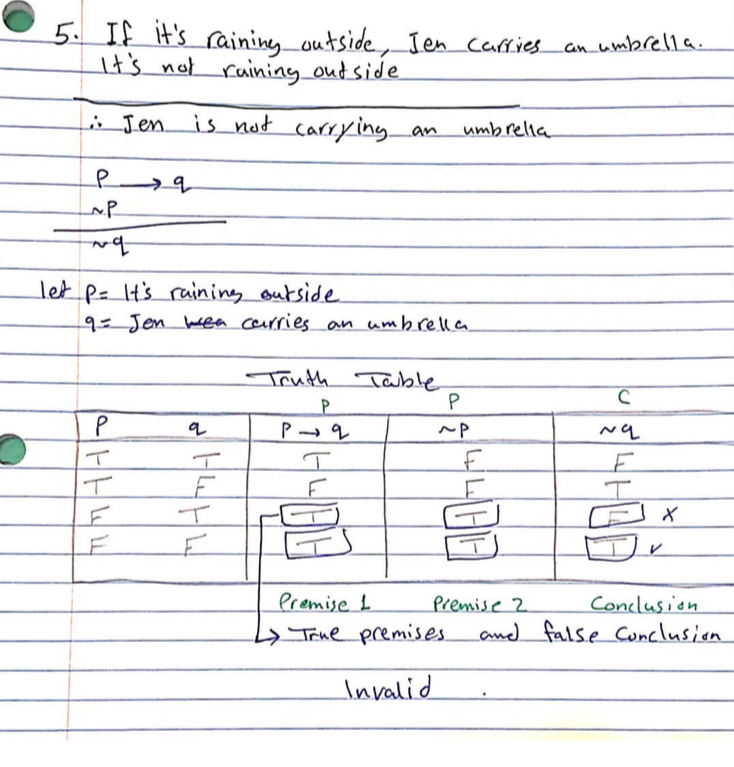 5. If it's raining outside, Jen carries an umbrella.
It's not raining outside
∴ Jen is not carrying an umbrella
P → q
~P
~q
let P = It's raining outside
q = Jen carries an umbrella
Truth Table
P P C
P q P → q ~P ~q
T T T F F
T F F F T
F T T T F x
F F T T T ✓
Premise 1 Premise 2 Conclusion
↳ True premises and false Conclusion
Invalid .